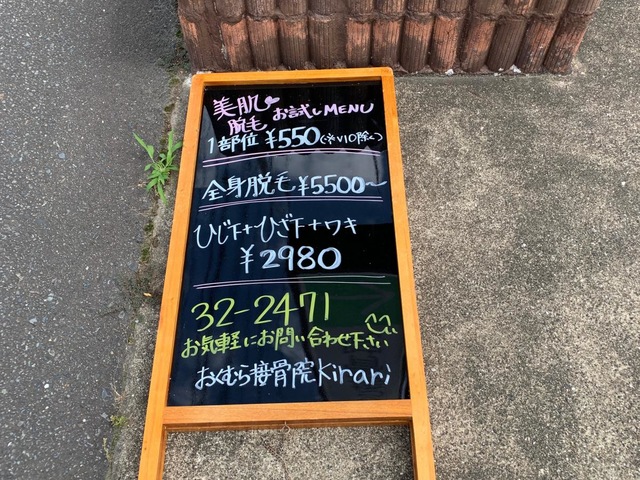 美肌♥
脱毛 お試しMENU
1部位 ¥550(※VIO除く)
全身脱毛¥5500~
ひじ下+ひざ下+ワキ
¥2980
32-2471
お気軽にお問い合わせ下さい
おくむら接骨院Kirari